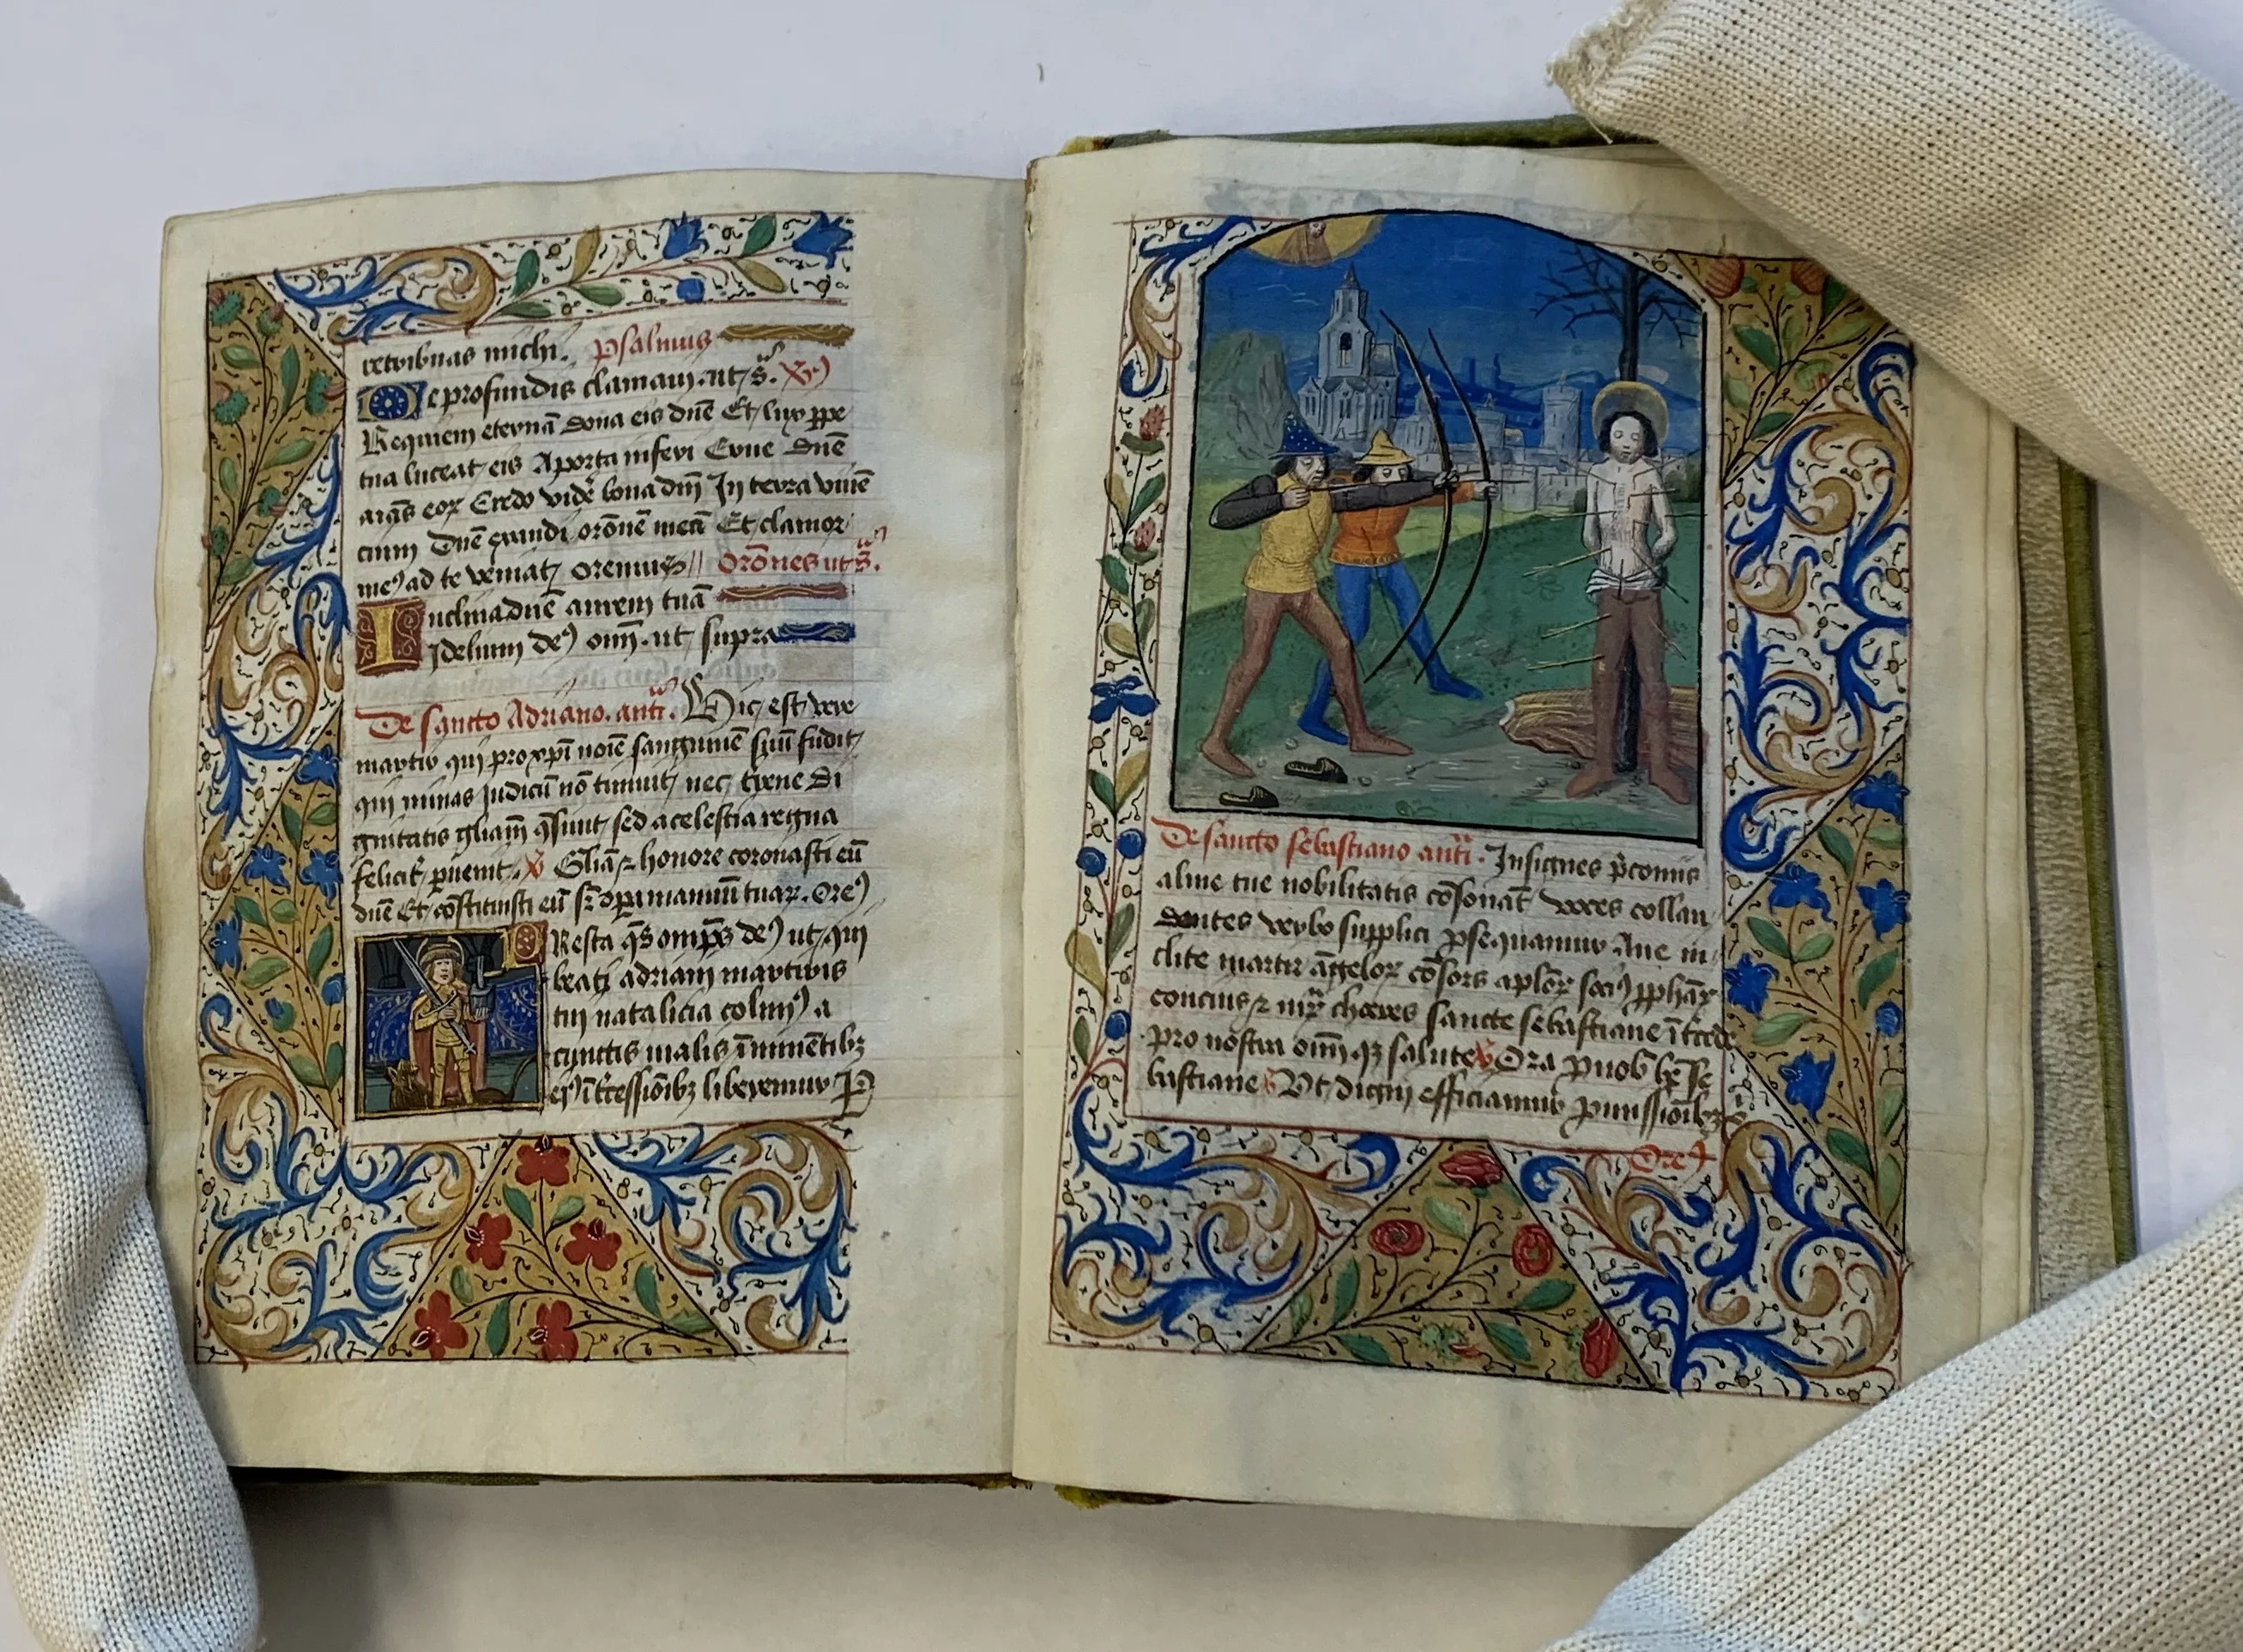 retribuas michi. Psalmus
De profundis clamaui. ut s̄.
Requiem eternā dona eis dn̄e Et lux ꝑpe
tua luceat eis A porta inferi Erue dn̄e
aīas eoꝝ Credo vidēr bona dnī In terra viuē
cium Dn̄e exaudi orōnē meā Et clamor
meꝰ ad te veniat oremus Orōnes ut s̄.
Inclina dn̄e aurem tuā
Fidelium deꝰ oīm. ut supra
De sancto Adriano. antī. Hic est vere
martir qui pro xp̄i noīe sanguinē suū fudit
qui minas Judicū nō timuit nec terrene di
gnitatis gliam q̄siuit sed a celestia regna
felicitr̄ ꝑuenit. v̄ Gliā ⁊ honore coronasti eū
dn̄e Et cōstituisti eū sr̄ opa manuū tuaꝝ. Oreꝰ
PResta q̄s omp̄s deꝰ ut qui
beati adriani martiris
tui natalicia colimꝰ a
cunctis malis īminētibꝫ
eiꝰ īt̄cessiōibꝫ liberemur P
De sancto sebastiano antī. Insignes p̄conijs
alme tue nobilitatis cōsonāt voces collau
dantes verbo supplici ꝓsequamur Aue in
clite martir āgeloꝝ cōsors aplōꝝ sociꝰ ꝓphāꝝ
concius ⁊ mr̄ꝝ choeres sancte sebastiane īt̄cede
pro nostra oīm qꝫ salute v̄ Ora ꝓ nob̄ bt̄e se
bastiane Vt digni efficiamur ꝓmissiōibꝫ
Oreꝰ